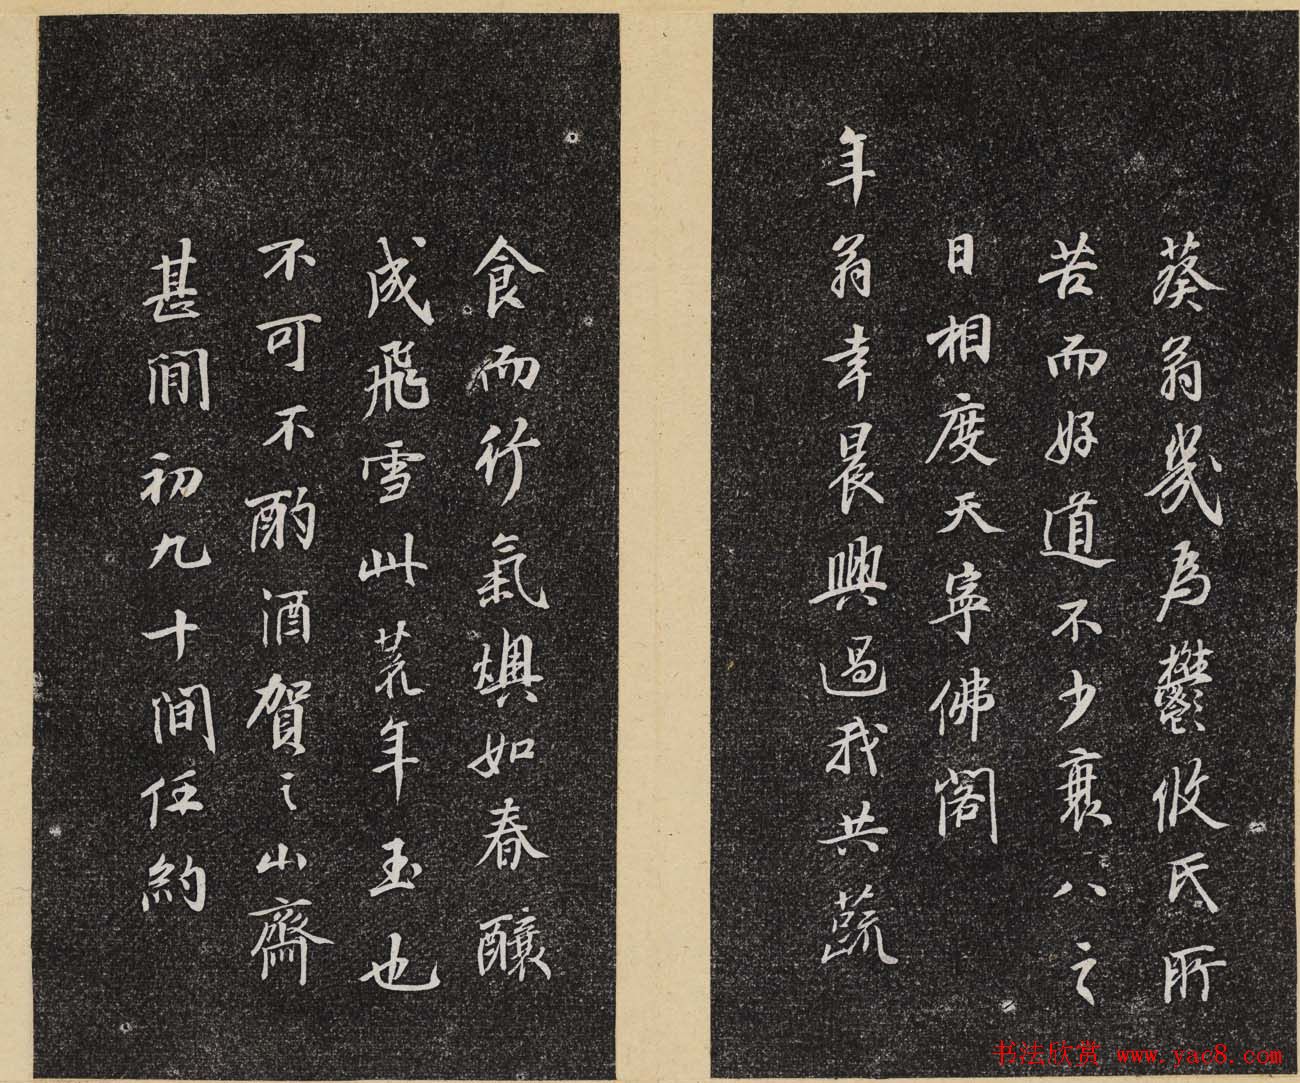 葵翁幾為鬱攸氏所
苦而好道不少衰八之
日相度天寧佛閣
年翁幸晨興過我共蔬
食而行氣燠如春釀
成飛雪此荒年玉也
不可不酌酒賀之山齋
甚閒初九十間任約
书法欣赏 www.yac8.com